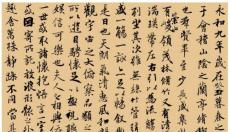 永和九年歲在癸丑暮春之
于會稽山陰之蘭亭脩
也群賢畢至少長咸
有崇山峻領茂林脩竹又
湍暎帶左右引以為流觴
列坐其次雖無絲竹管
盛一觴一詠亦足以暢敘
是日也天朗氣清惠風
觀宇宙之大俯察品類
所以遊目騁懷足以極
娛信可樂也夫人之相與
一世或取諸懷抱悟言
或因寄所託放浪形骸
趣舍萬殊靜躁不同當其